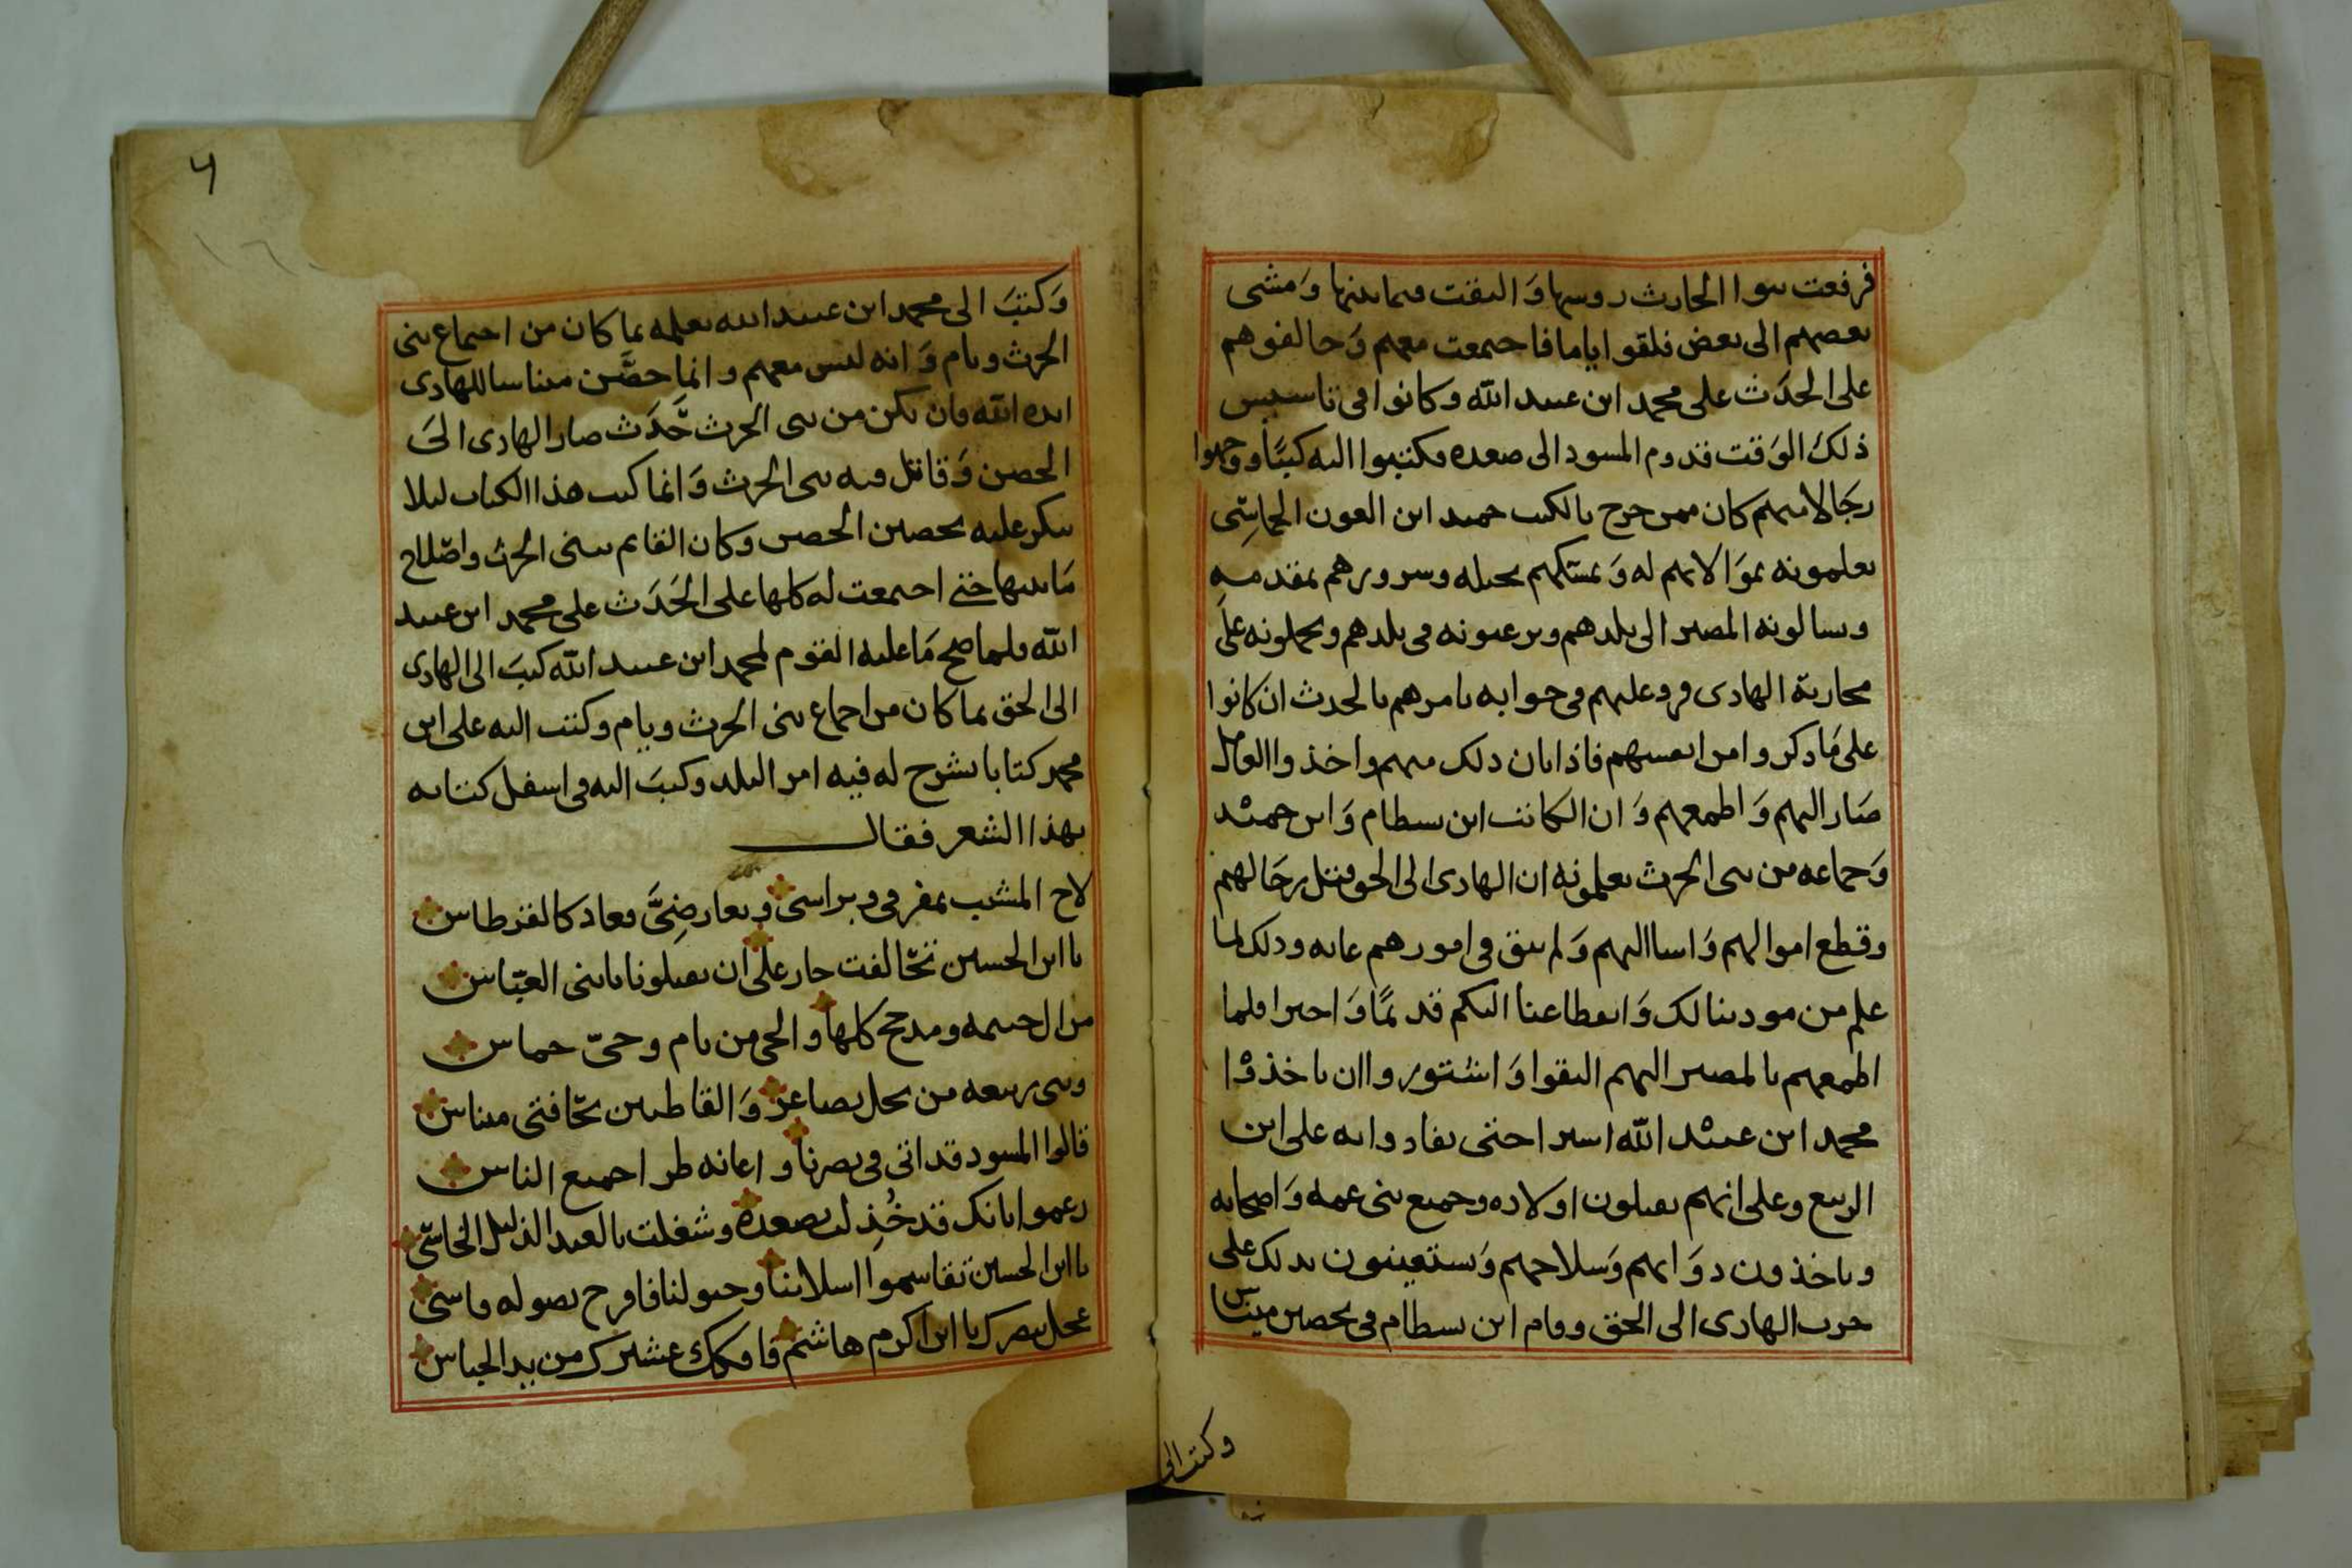 فرفعت بنوا الحارث روسها والتفت فيما بينها ومشى
بعضهم الى بعض فلقوا ياما فاجتمعت معهم وحالفوهم
على الحدث على محمد ابن عبيد الله وكانوا في تاسيس
ذلك الوقت قدوم المسود الى صعده فكتبوا اليه كتبًا ووجهوا
رجالا منهم كان ممن خرج بالكتب حميد ابن العون الحماسي
يعلمونه بموالاتهم له وتمسكهم بحبله وسرورهم بمقدمه
ويسالونه المصير الى بلدهم ويرغبونه في بلدهم ويحملونه على
محاربة الهادى فرد عليهم في جوابه يامرهم بالحدث ان كانوا
على ما ذكروا من انفسهم فاذا بان ذلك منهم واخذوا العامل
صار اليهم واطمعهم وان الكاتب ابن بسطام وابن حميد
وجماعه من بنى الحرث يعلمونه ان الهادى الى الحق قتل رجالهم
وقطع اموالهم واسا اليهم ولم يبق في امورهم غايه وذلك لما
علم من مودتنا لك وانقطاعنا اليكم قديمًا واخيرا فلما
اطمعهم بالمصير اليهم التقوا واشتوروا ان ياخذوا
محمد ابن عبيد الله اسيرا حتى يفادوا به على ابن
الربيع وعلى انهم يقتلون اولاده وجميع بنى عمه واصحابه
وياخذون دوابهم وسلاحهم ويستعينون بذلك على
حرب الهادى الى الحق وقام ابن بسطام في تحصين ميناس
وكتب الى
٦
وكتب الى محمد ابن عبيد الله يعلمه بما كان من اجتماع بنى
الحرث ويام وانه ليس معهم وانما حصَّن ميناسا للهادى
ايده الله فان يكن من بنى الحرث حَدَث صار الهادى الى
الحصن وقاتل فيه بنى الحرث وانما كتب هذا الكتاب ليلا
ينكر عليه تحصين الحصن وكان القايم ببنى الحرث واصلاح
ما بينها حتى اجتمعت له كلها على الحَدَث على محمد ابن عبيد
الله ولما صح ما عليه القوم لمحمد ابن عبيد الله كتب الى الهادى
الى الحق بما كان من اجماع بنى الحرث ويام وكتب اليه على ابن
محمد كتابا يشرح له فيه امر البلد وكتب اليه في اسفل كتابه
بهذا الشعر فقال
لاح المشيب بمفرقي وبراسى وبعارضِيَّ فعاد كالقرطاس
يا ابن الحسين تحالفت حار على ان يقتلونا يا بنى العبّاس
من ال خيثمه ومدحج كلها والحي من يام وحىّ حماس
وبنى ربيعه من بحل بصاغر والقاطنين بحافتى ميناس
قالوا المسود قد اتى في نصرنا واعانه طرا جميع الناس
زعموا بانك قد خُذِلت بصعده وشغلت بالعبد الذليل الخاسّي
يا ابن الحسين تقاسموا اسلابنا وخيولنا فافرح بصوله قاسى
عجل بنصرك يا ابن اكرم هاشم وافكك عشيرك من يد الحباس